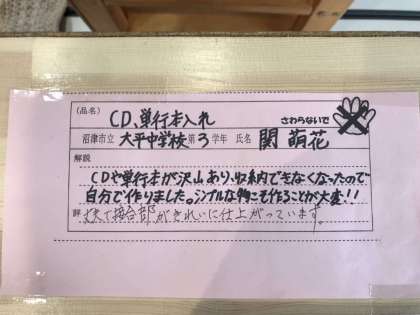 (品名) CD、単行本入れ
さわらないで
沼津市立 大平中学校 第3学年 氏名 関 萌花
解説
CDや単行本が沢山あり、収納できなくなったので
自分で作りました。シンプルな物こそ作ることが大変!!
評 丈夫で接合部がきれいに仕上がっています。